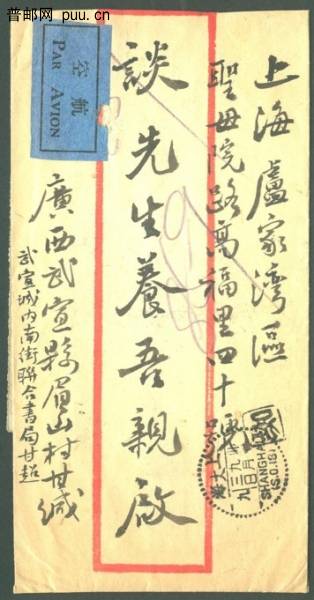 普邮网 puu.cn
航空
PAR AVION
上海盧家灣區
聖母院路高福里四十號
談先生養吾親啟
廣西武宣縣眉山村甘緘
武宣城內南街聯合書局甘超
SHANGHAI